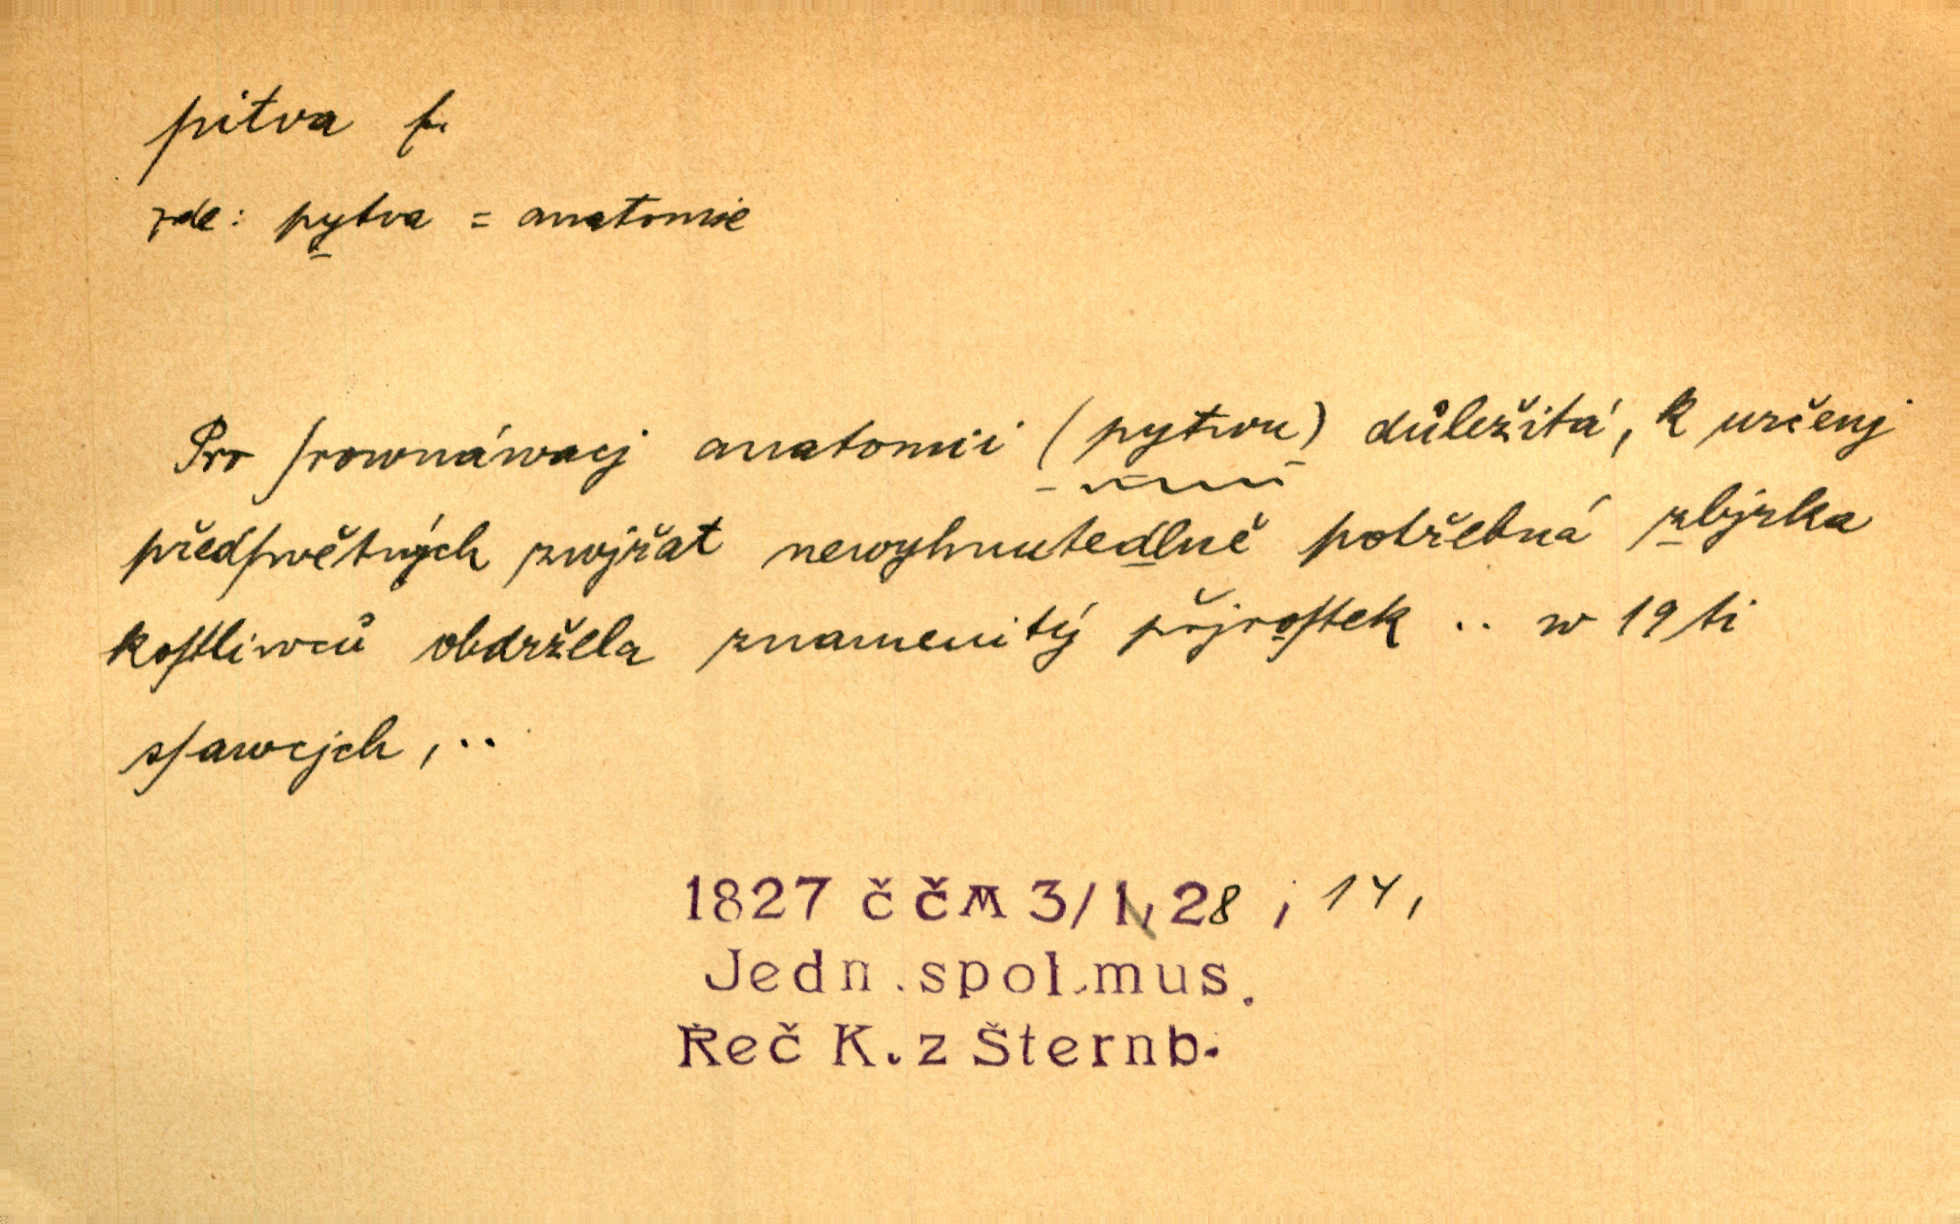 pitva f.
zde: pytva = anatomie
Pro ſrownáwacj anatomii (pytwu) důležitá, k určenj
předſwětných zwjřat newyhnutedlně potřebná zbjrka
koſtliwců obdržela znamenitý přjroſtek .. w 19ti
sſawcjch, ..
1827 ČČM 3/1, 28, 14,
Jedn. spol. mus.
Řeč K. z Šternb.